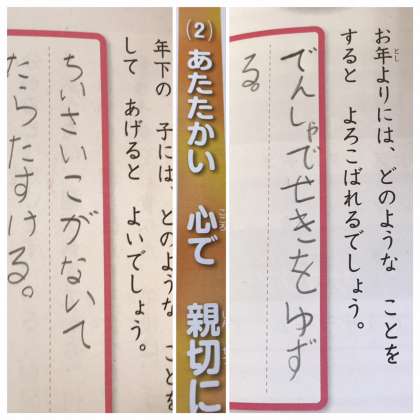 お年よりには、どのような ことを
すると よろこばれるでしょう。
でんしゃでせきをゆず
る。
(2) あたたかい 心で 親切に
年下の 子には、どのような ことを
して あげると よいでしょう。
ちいさいこがないて
たらたすける。